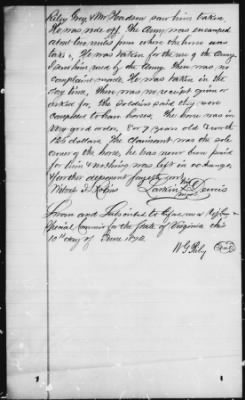 Riley Grey, & Mr Headson saw him taken.
He was rode off. The Army was encamped
about two miles from where the horse was
taken. He was taken for the use of the Army.
I saw him used by the Army. There was no
complaint made. He was taken in the
day time, there was no receipt given or
asked for. The soldiers said they were
compelled to have horses. The horse was in
very good order, 6 or 7 years old & worth
125 dollars. The claimant was the sole
owner of the horse, he has never been paid
for him & nothing was left in exchange,
Further deponent sayeth not.
his
Larkin X Dennis
mark
Sworn and Subscribed to before me a
Special Commr for the State of Virginia this
10th day of June 187
W G Riley